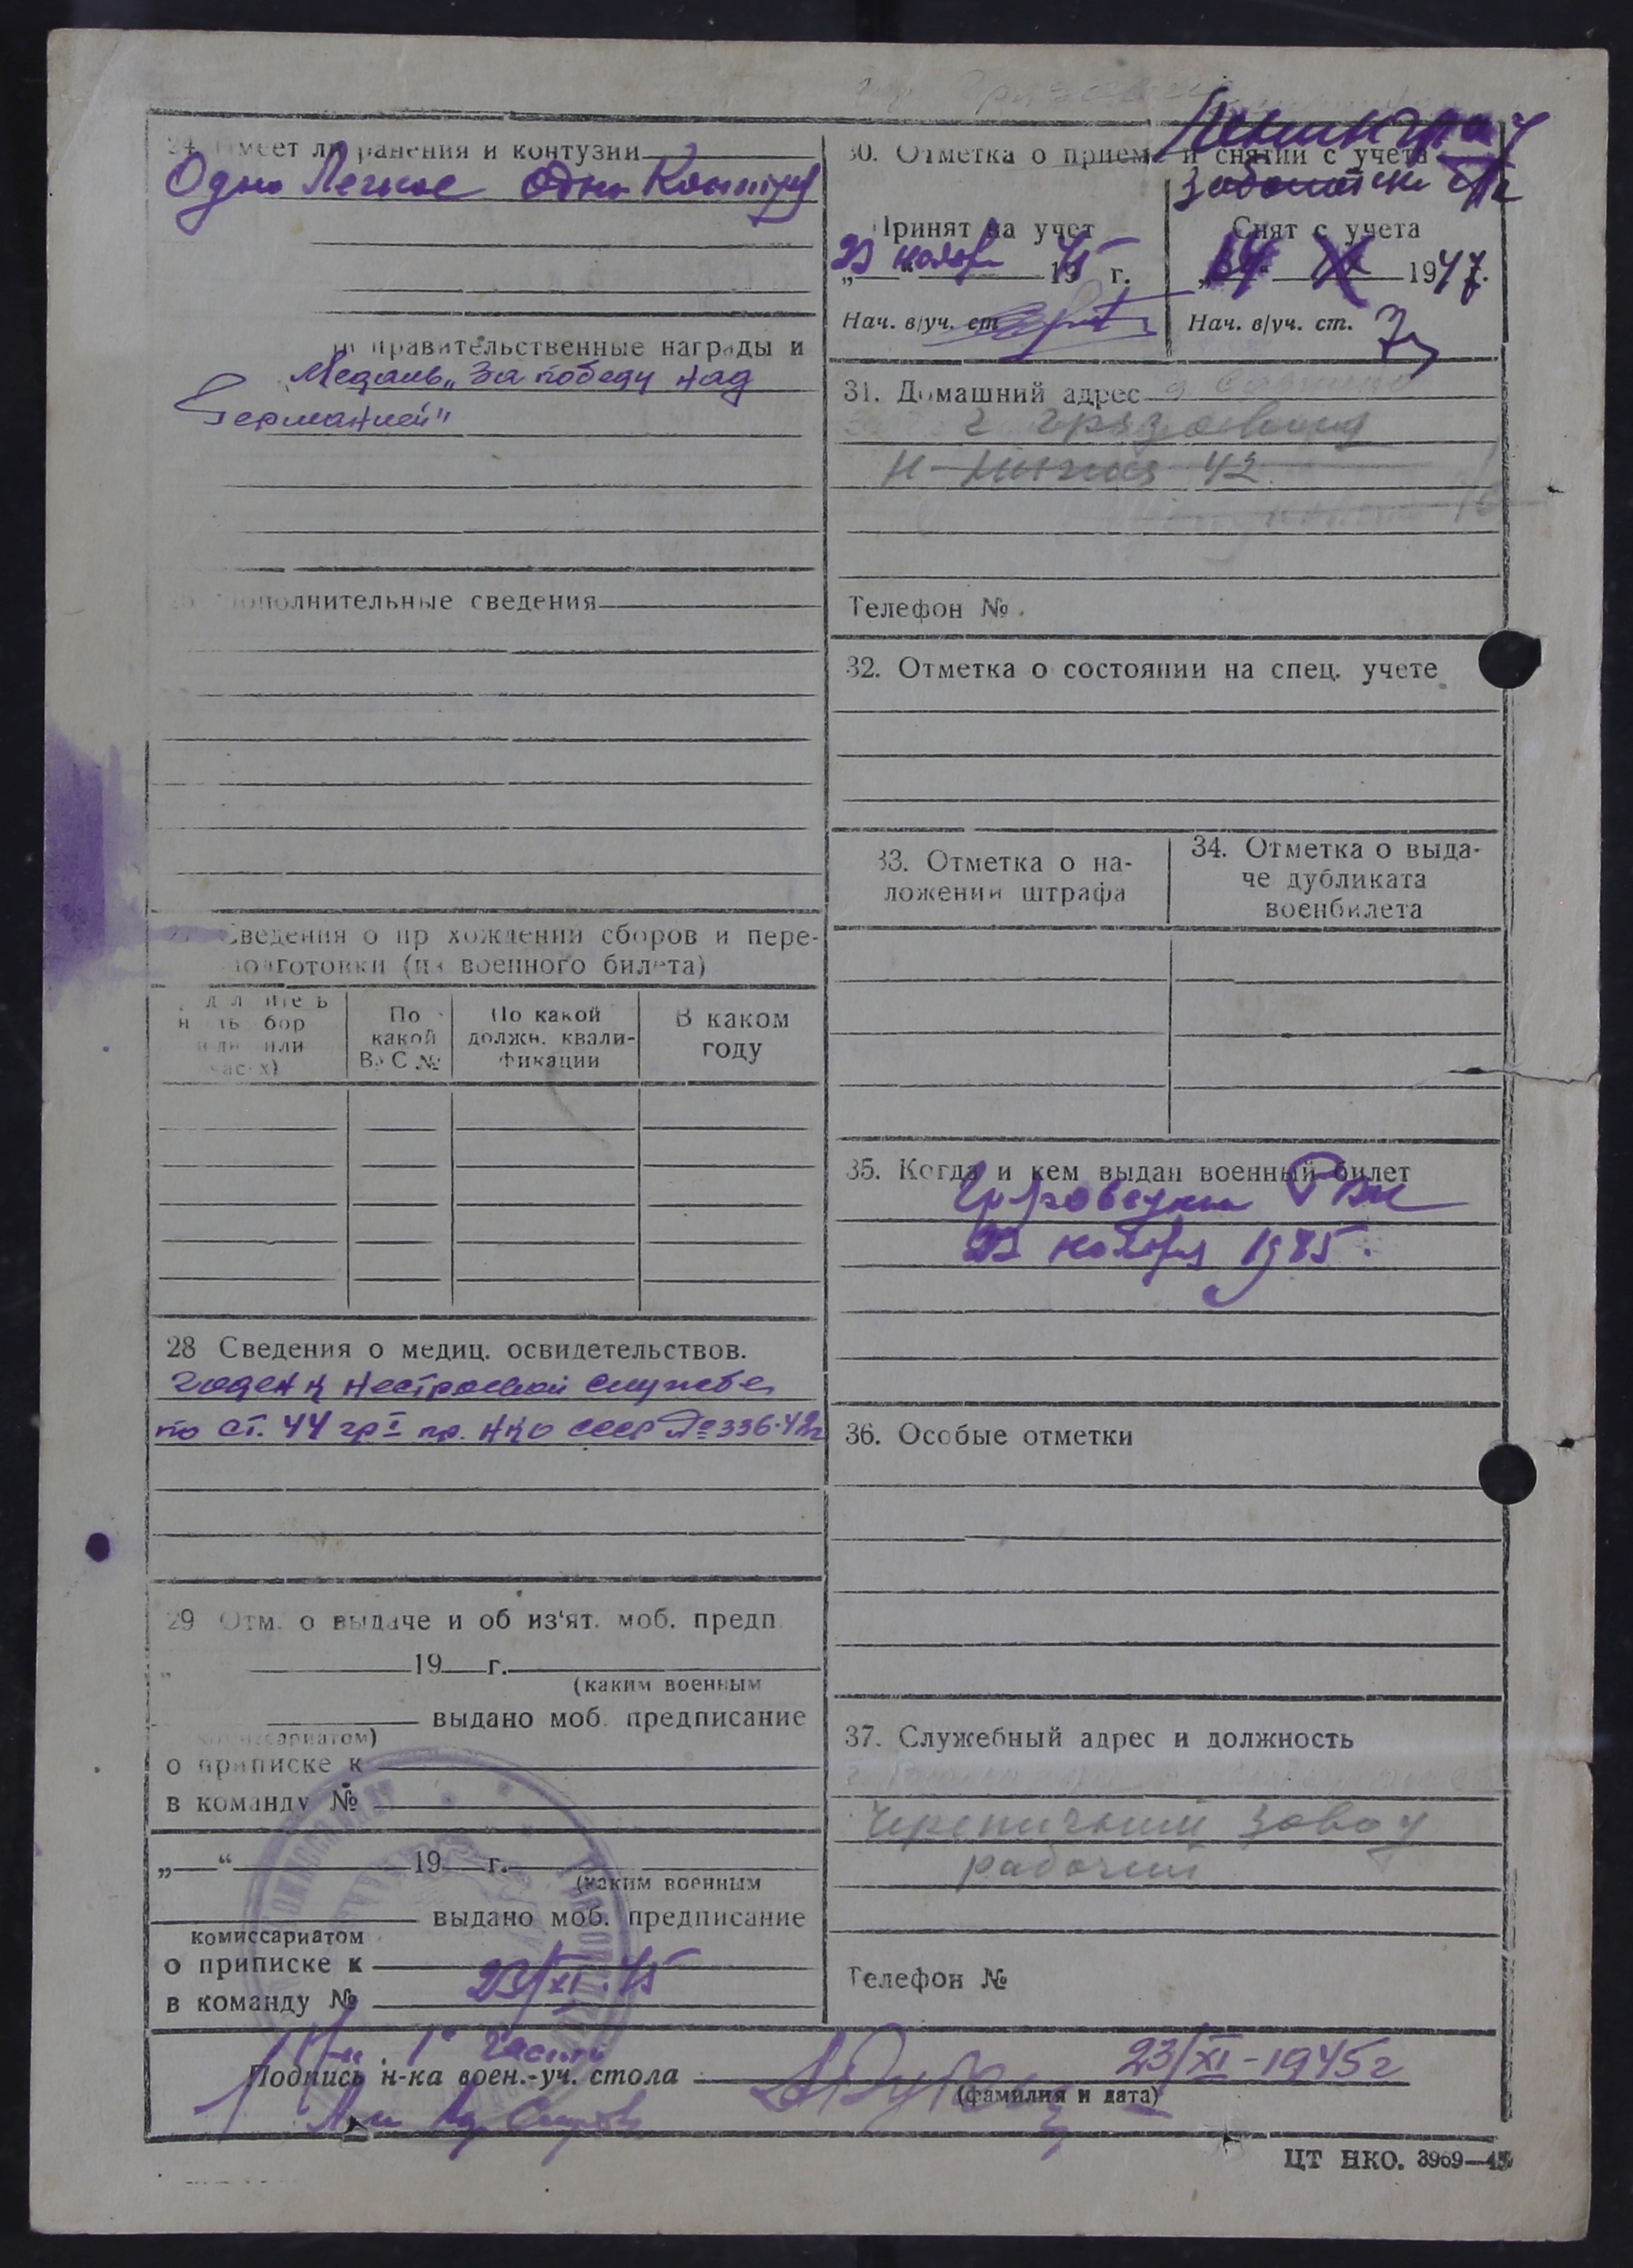 24. Имеет ли ранения и контузии
Одно Легкое одно
правительственные награды и
Медаль „За победу над
Германией"
дополнительные сведения
27. Сведения о прохождении сборов и пере-
подготовки (из военного билета)
По
какой
ВУС №
По какой
должн. квали-
фикации
В каком
году
28 Сведения о медиц. освидетельствов.
годен к нестроевой службе
по ст. 44 гр I пр. НКО СССР № 336-42г
29 Отм. о выдаче и об из'ят. моб. предп.
19 г.
(каким военным
выдано моб. предписание
комиссариатом)
о приписке к
в команду №
„ “ 19 г.
(каким военным
выдано моб. предписание
комиссариатом
о приписке к
в команду №
23/XI 45
Ленинград
30. Отметка о приеме и снятии с учета
Принят на учет
23 ноября 1945 г.
Нач. в/уч. ст.
Снят с учета
„ 1947.
Нач. в/уч. ст.
31. Домашний адрес
г Грязовец
42
Телефон №
32. Отметка о состоянии на спец. учете
33. Отметка о на-
ложении штрафа
34. Отметка о выда-
че дубликата
военбилета
35. Когда и кем выдан военный билет
РВК
23 ноября 1945.
36. Особые отметки
37. Служебный адрес и должность
Черепичный завод
рабочий
Телефон №
1й части
Подпись н-ка воен.-уч. стола 23/XI-1945г
(фамилия и дата)
ЦТ НКО. 3969—45